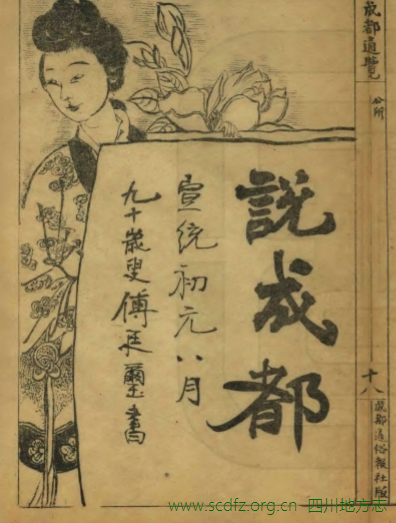 成都通覽
公所
十八
成都通俗報社版
說成都
宣統初元八月
九十歲叟傅廷璽書
www.scdfz.org.cn 四川地方志